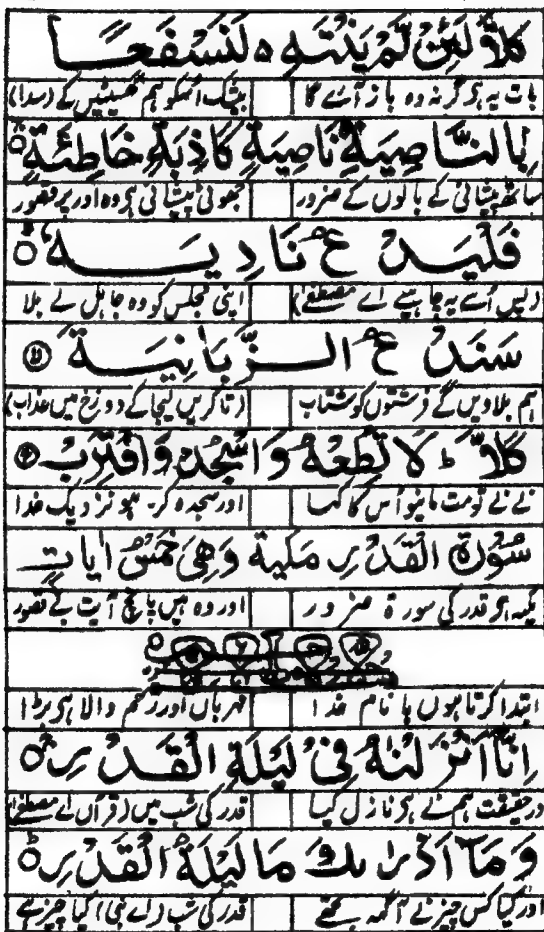 كَلَّا لَئِنْ لَمْ يَنْتَهِ ۵ لَنَسْفَعًا
بات یہ ہرگز نہ وہ باز آئے گا بیشک اُسکو ہم گھسیٹیں گے (سدا)
بِالنَّاصِيَةِ نَاصِيَةٍ كَاذِبَةٍ خَاطِئَةٍ
ساتھ پیشانی کے بالوں کے ضرور جھوٹی پیشانی ہے وہ اور پر قصور
فَلْيَدْعُ نَادِيَهُ
(پس اُسے یہ چاہیے اے مصطفےٰ) اپنی مجلس کو وہ جاہل لے بلا
سَنَدْعُ الزَّبَانِيَةَ
ہم بلاویں گے فرشتوں کو شتاب (تا کریں لیجا کے دوزخ میں عذاب)
كَلَّا ط لَا تُطِعْهُ وَاسْجُدْ وَاقْتَرِبْ
نے نے تو مت مانیو اُس کا کہا اور سجدہ کر۔ ہو نزدیک خدا
سُوْرَةُ الْقَدْرِ مَكِّيَةٌ وَهِيَ خَمْسُ اٰيَاتٍ
ہے قدر کی سورۃ ضرور اور وہ ہیں پانچ آیت بے قصور
ابتدا کرتا ہوں با نام خدا مہرباں اور رحم والا ہے بڑا
اِنَّآ اَنْزَلْنٰهُ فِيْ لَيْلَةِ الْقَدْرِ
در حقیقت ہم نے ہے نازل کیا قدر کی شب میں (قرآں اے مصطفےٰ)
وَمَآ اَدْرٰىكَ مَا لَيْلَةُ الْقَدْرِ
اور کیا کس چیز نے آگہ تجھے قدر کی شب (اے نبی) کیا چیز ہے